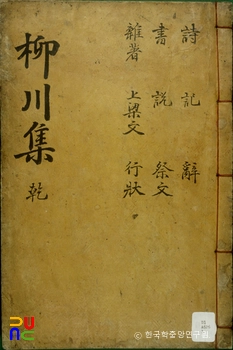 柳川集
乾
詩 記 辭
書 說 祭文
雜著 上梁文 行狀
ⓒ한국학중앙연구원